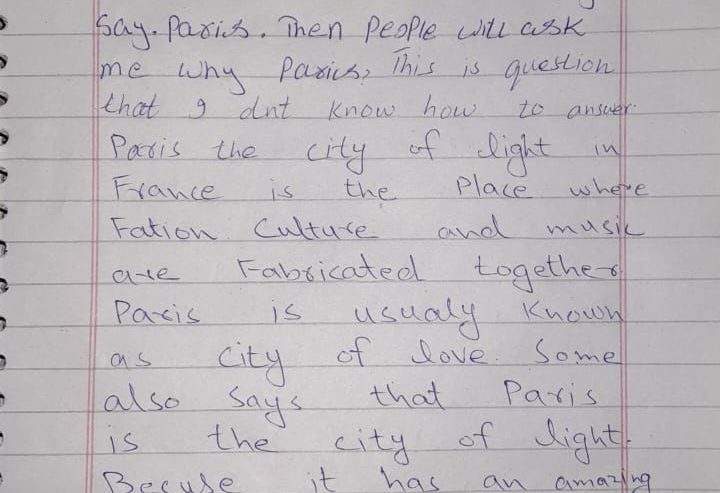 Say. Paris. Then People will ask
me why Paris, This is question
that I dnt know how to answer.
Paris the city of light in
France is the Place where
Fation Culture and music
are Fabricated together
Paris is usualy Known
as City of love. Some
also Says that Paris
is the city of light.
Becuse it has an amazing